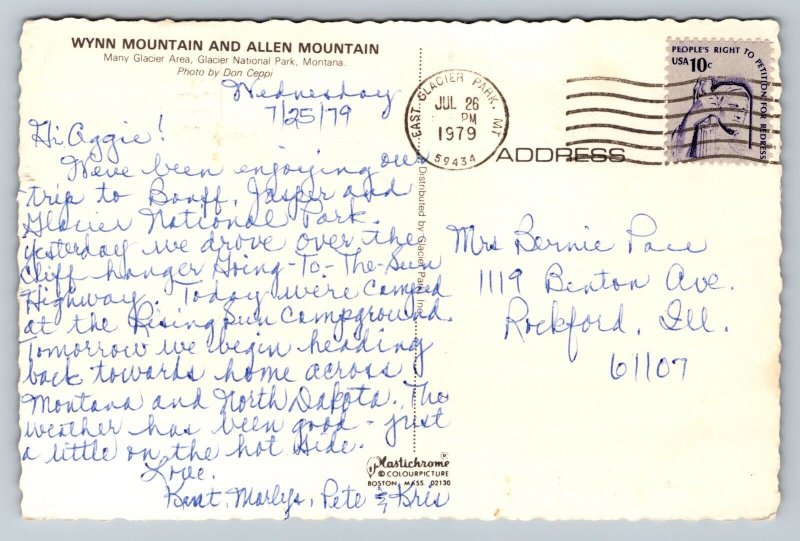 WYNN MOUNTAIN AND ALLEN MOUNTAIN
Many Glacier Area, Glacier National Park, Montana.
Photo by Don Ceppi
Wednesday
7/25/79
Hi Aggie!
We've been enjoying our
trip to Banff, Jasper and
Glacier National Park.
Yesterday we drove over the
cliff hanger Going-To-The-Sun
Highway. Today we're camped
at the Rising Sun Campground.
Tomorrow we begin heading
back towards home across
Montana and North Dakota. The
weather has been good - just
a little on the hot side.
Love,
Kent, Marlys, Pete & Kris
Distributed by Glacier Park, Inc.
Plastichrome®
© COLOURPICTURE
BOSTON, MASS 02130
EAST GLACIER PARK, MT
JUL 26
PM
1979
59434
PEOPLE'S RIGHT TO PETITION FOR REDRESS
USA 10c
ADDRESS
Mrs Bernie Pace
1119 Benton Ave.
Rockford, Ill.
61107